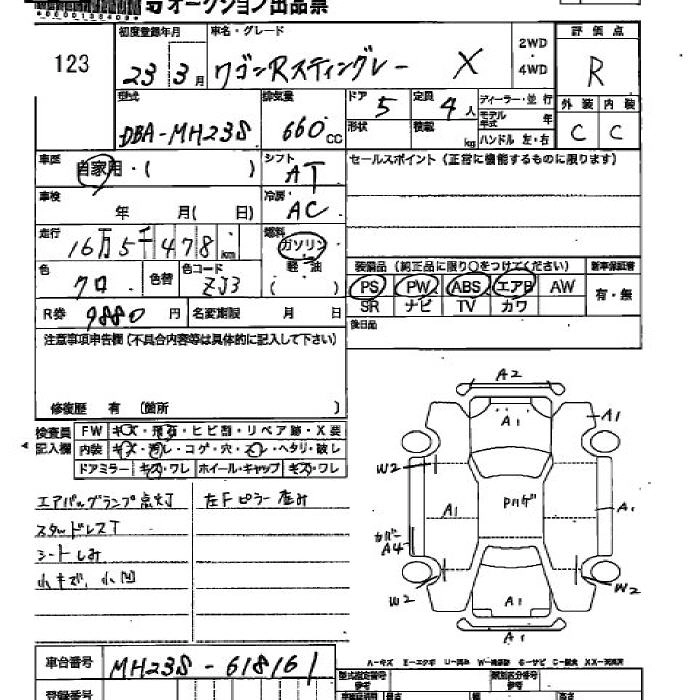 オークション出品票
123
初度登録年月
23年3月
車名・グレード
ワゴンRスティングレー X
2WD
4WD
評価点
R
型式
DBA-MH23S
排気量
660cc
ドア 5
定員 4人
形状
積載 kg
ディーラー・並行
モデル年式 年
ハンドル 左・右
外装 内装
C C
車歴
自家用・( )
シフト
AT
セールスポイント (正常に機能するものに限ります)
車検
年 月( 日)
冷房
AC
走行
16万5千478km
燃料
ガソリン
軽油
( )
色
クロ
色替
色コード
ZJ3
装備品 (純正品に限り○をつけてください)
新車保証書
PS PW ABS エアB AW
有・無
SR ナビ TV カワ
R券 9880円
名変期限 月 日
後日品
注意事項申告欄 (不具合内容等は具体的に記入して下さい)
修復歴 有 〔箇所 〕
検査員記入欄
FW キズ・飛石・ヒビ割・リペア跡・X要
内装 キズ・汚レ・コゲ・穴・スレ・ヘタリ・破レ
ドアミラー キズ・ワレ ホイール・キャップ キズ・ワレ
エアバッグランプ点灯
左Fピラー歪み
スタッドレスT
シートしみ
小キズ、小凹
A2
A1
A1
W2
Pハゲ
A1
A1
カバー
A4
W2
W2
A1
A1
車台番号
MH23S-618161
登録番号
A-キズ E-エクボ U-凹み W-補修跡 S-サビ C-腐食 XX-交換済
型式指定番号
類別区分番号
参考
長さ 幅 高さ